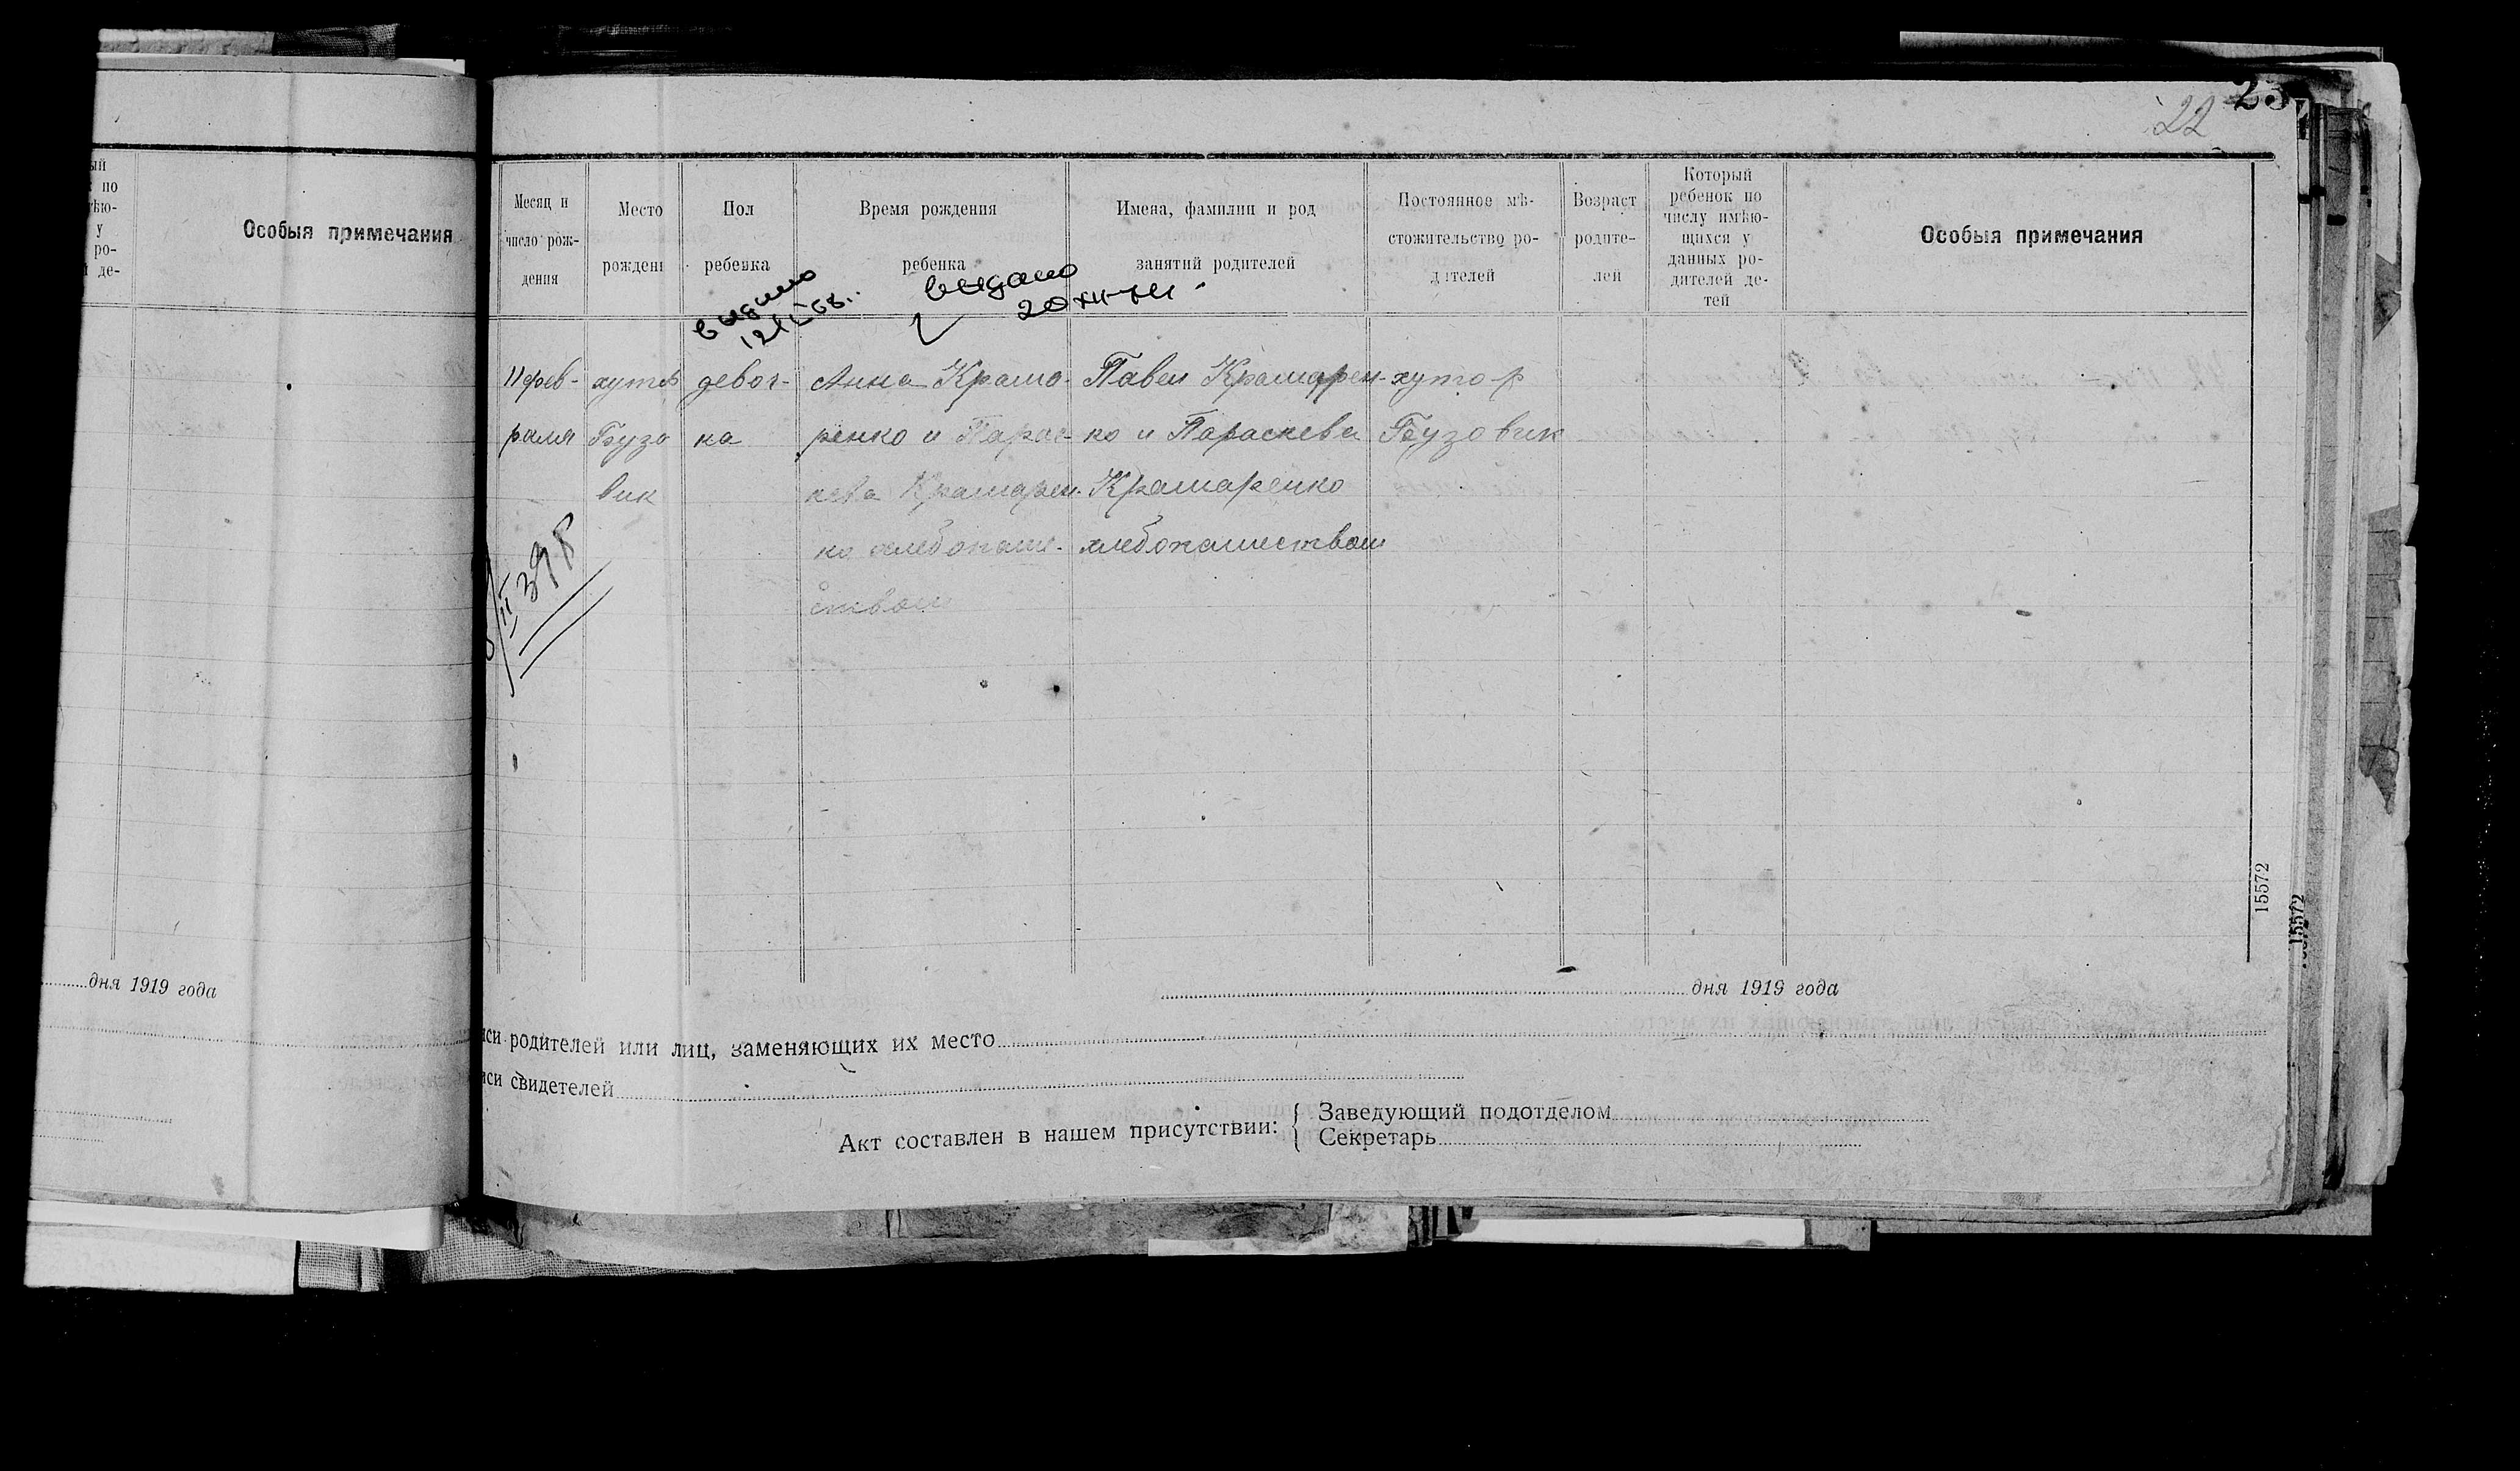 23
22
ый
по
ѣю-
у
ро-
де-
Особыя примечания
дня 1919 года
Месяц и
число рож-
дения
Место
рождені
Пол
ребенка
Время рождения
ребенка
Имена, фамилии и род
занятий родителей
Постоянное мѣ-
стожительство ро-
дителей
Возраст
родите-
лей
Который
ребенок по
числу имѣю-
щихся у
данных ро-
дителей де-
тей
Особыя примечания
выдано
выдано
11 фев-
раля
хутор
Бузо
вик
девоч-
ка
Анна Крама-
ренко и Парас-
кева Крамарен-
ко хлебопаше-
ством
Павел Крамарен-
ко и Параскева
Крамаренко
хлебопашеством
хутор
Бузовик
15572
15572
дня 1919 года
иси родителей или лиц, заменяющих их место
иси свидетелей
Акт составлен в нашем присутствии:
Заведующий подотделом
Секретарь